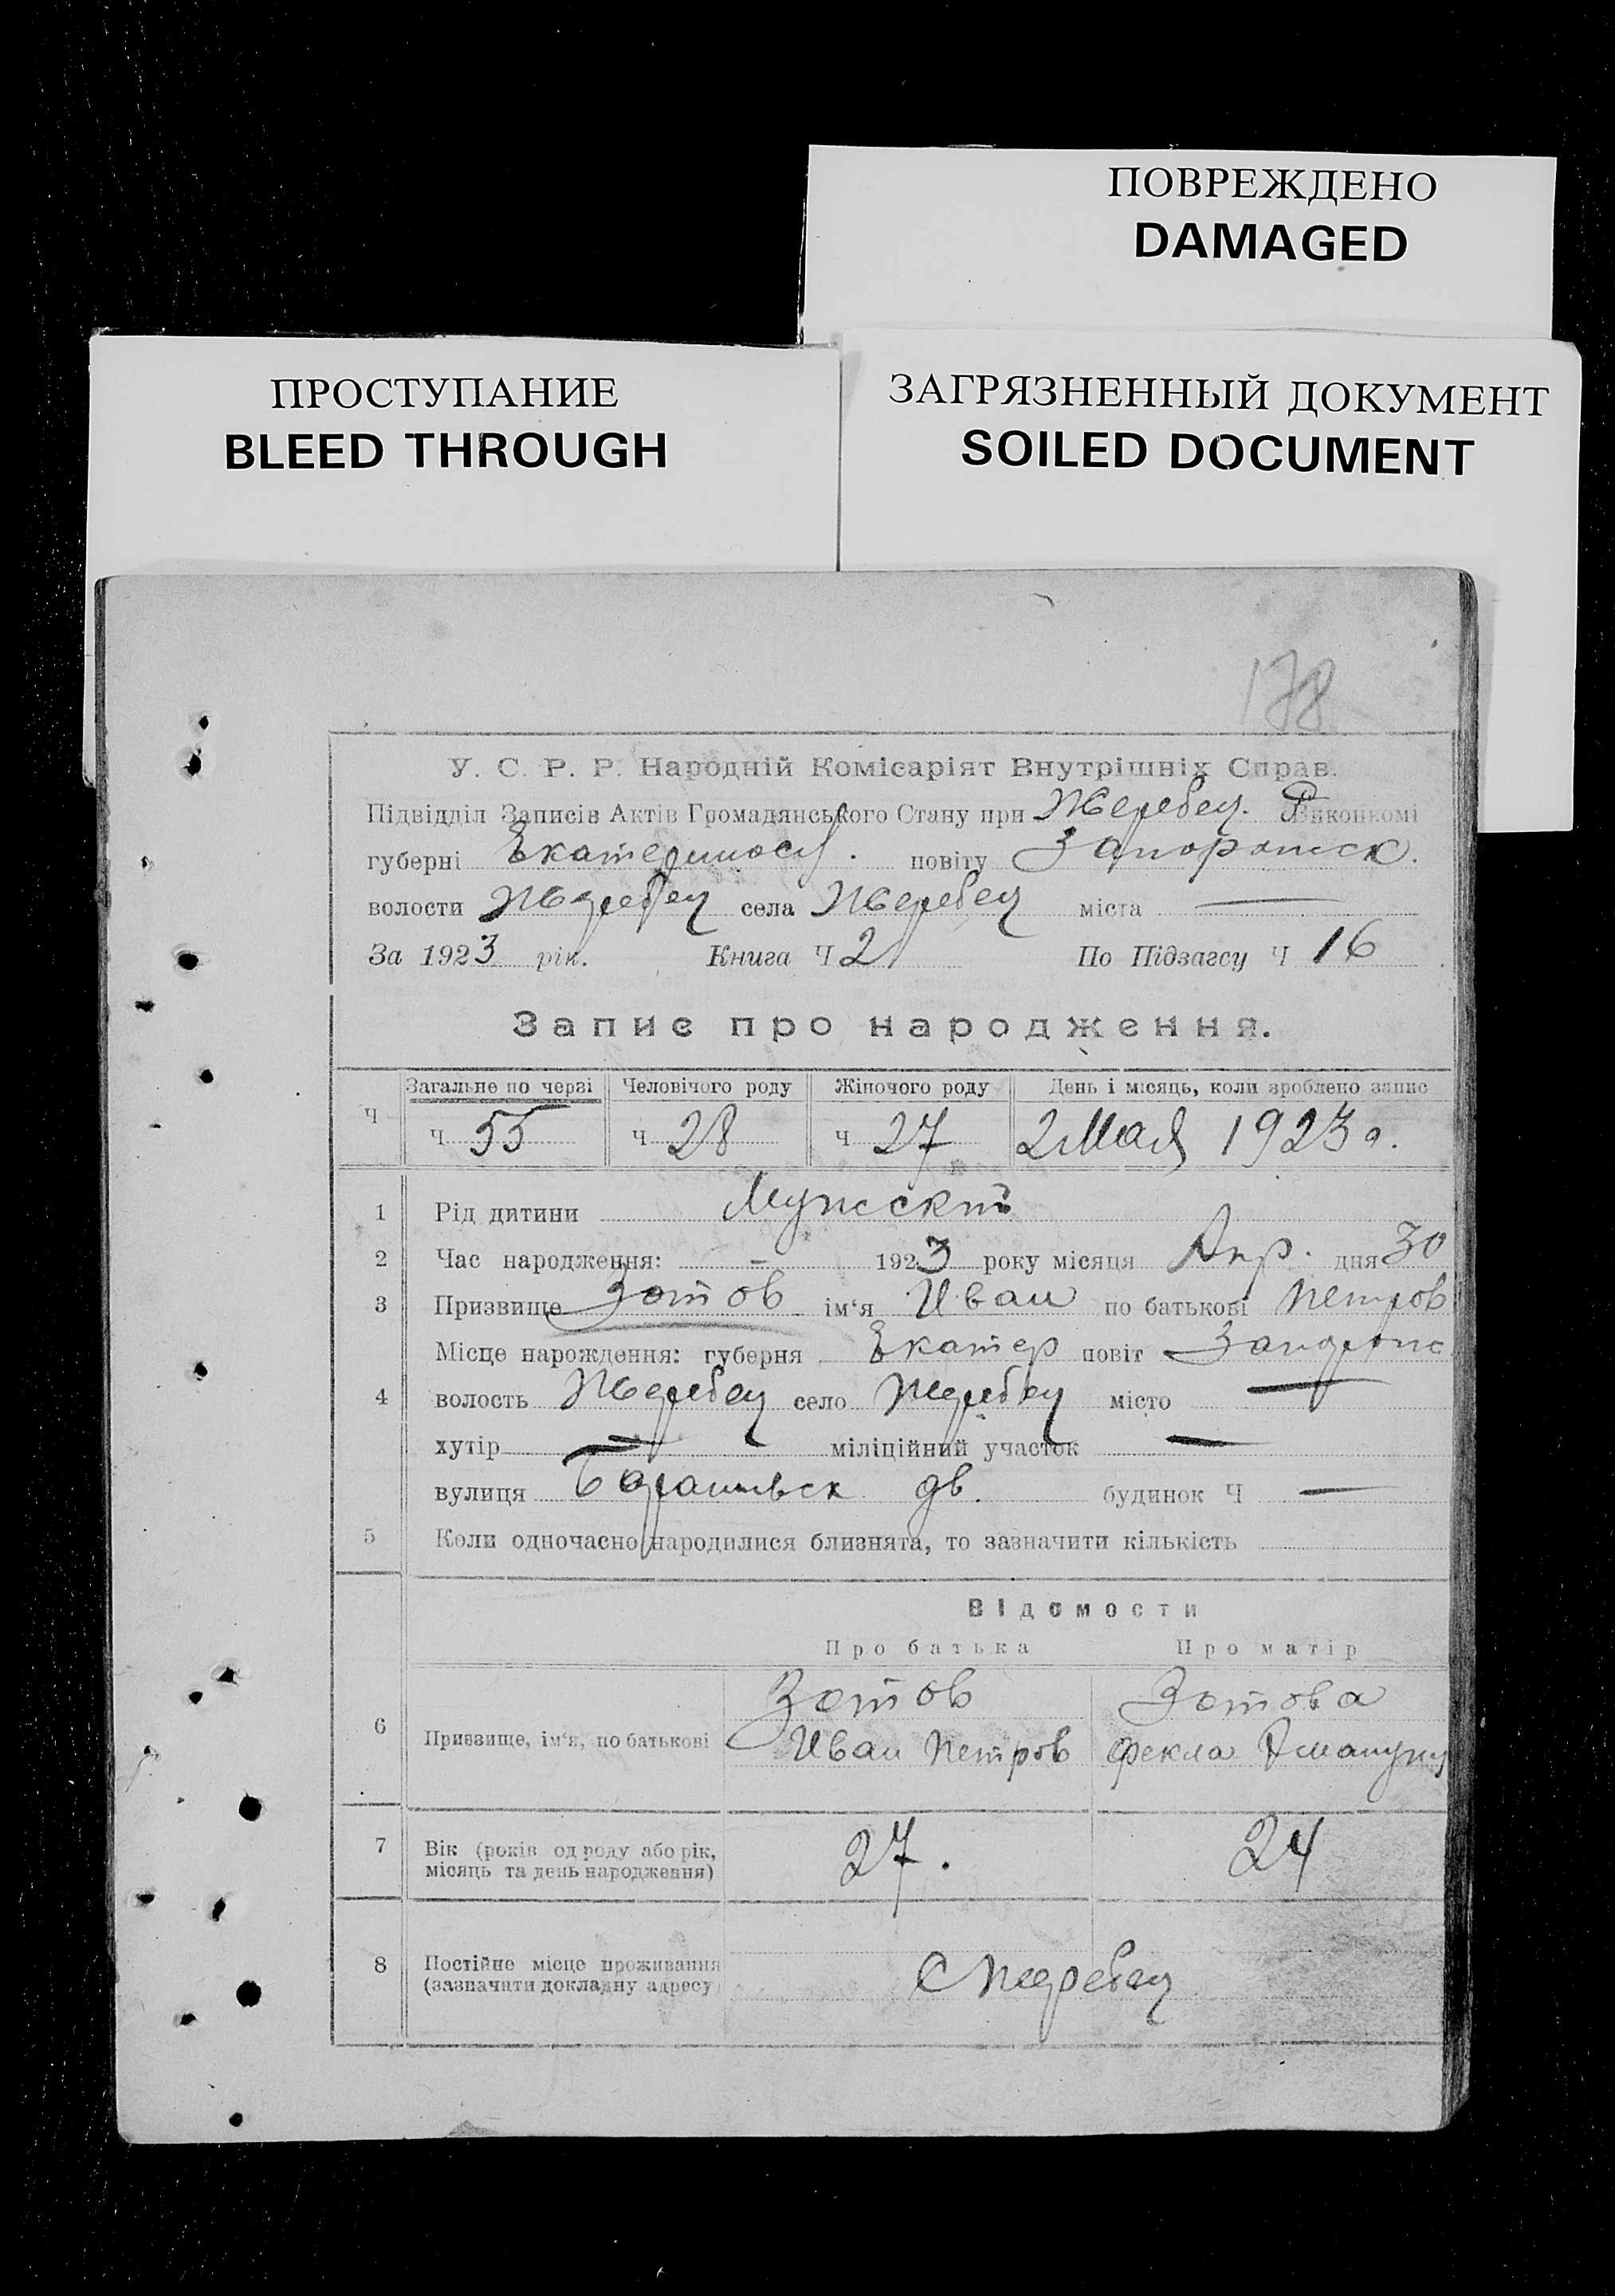 ПОВРЕЖДЕНО
DAMAGED
ПРОСТУПАНИЕ
BLEED THROUGH
ЗАГРЯЗНЕННЫЙ ДОКУМЕНТ
SOILED DOCUMENT
178
У. С. Р. Р. Народній Комісаріят Внутрішніх Справ.
Підвідділ Записів Актів Громадянського Стану при Жеребец. Виконкомі
губерні Екатериносл. повіту Запорожск.
волости Жеребец села Жеребец міста —
За 1923 рік. Книга Ч 2 По Підзагсу Ч 16
Запис про народження.
Загальне по черзі Человічого роду Жіночого роду День і місяць, коли зроблено запис
Ч Ч 55 Ч 28 Ч 27 2 Мая 1923 г.
1 Рід дитини Мужскій
2 Час народження: - 1923 року місяця Апр. дня 30
3 Призвище Зотов ім‘я Иван по батькові Петров
Місце народження: губерня Екатер повіт Запорож
4 волость Жеребец село Жеребец місто —
хутір — міліційний участок —
вулиця дв. будинок Ч —
5 Коли одночасно народилися близнята, то зазначити кількість
Відомости
Про батька Про матір
Зотов Зотова
6 Призвище, ім‘я, по батькові Иван Петров Фекла
7 Вік (років од роду або рік, місяць та день народження) 27. 24
8 Постійне місце проживання (зазначити докладну адресу) С Жеребец